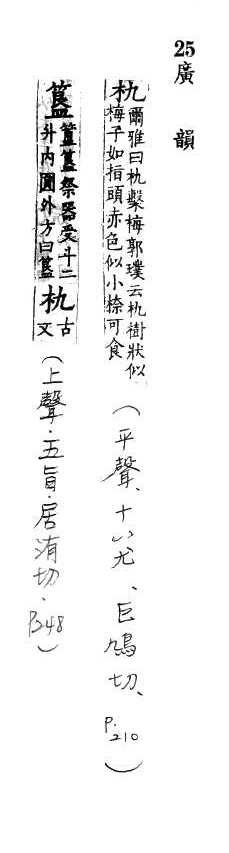 25 廣韻
朹爾雅曰朹檕梅郭璞云朹樹狀似
梅子如指頭赤色似小㮈可食
(平聲、十八尤、巨鳩切、P.210)
簋簠簋祭器受斗二
升內圓外方曰簋
朹古
文
(上聲·五旨·居洧切·P248)